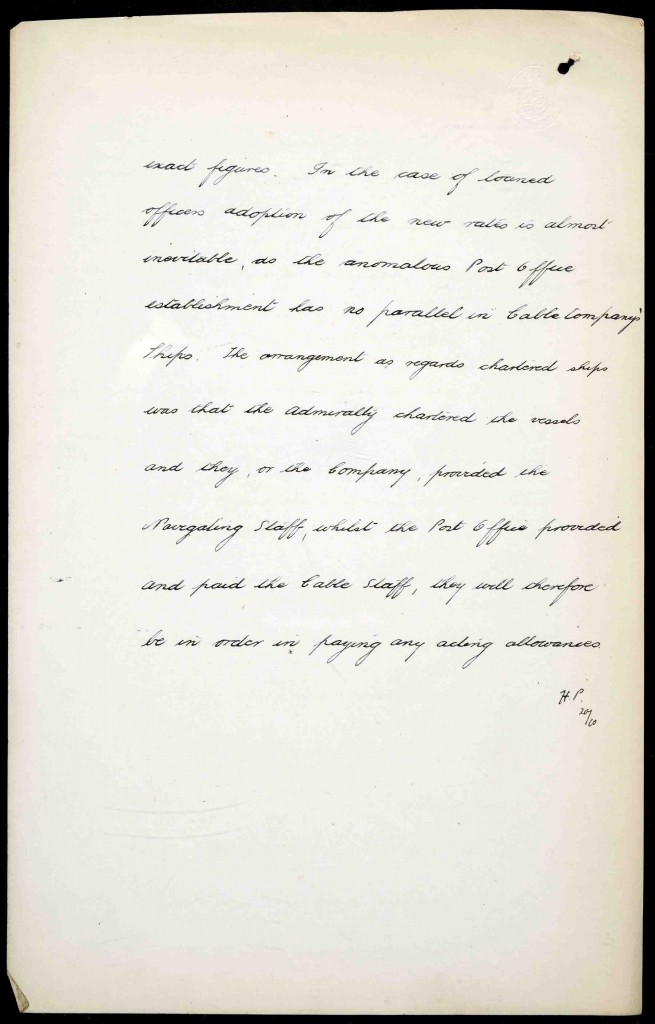 exact figures. In the case of loaned
officers adoption of the new rates is almost
inevitable, as the anomalous Post Office
establishment has no parallel in Cable Company's
Ships. The arrangement as regards chartered ships
was that the Admiralty chartered the vessels
and they, or the Company, provided the
Navigating Staff, whilst the Post Office provided
and paid the Cable Staff, they will therefore
be in order in paying any acting allowances.
H.P.
20/10